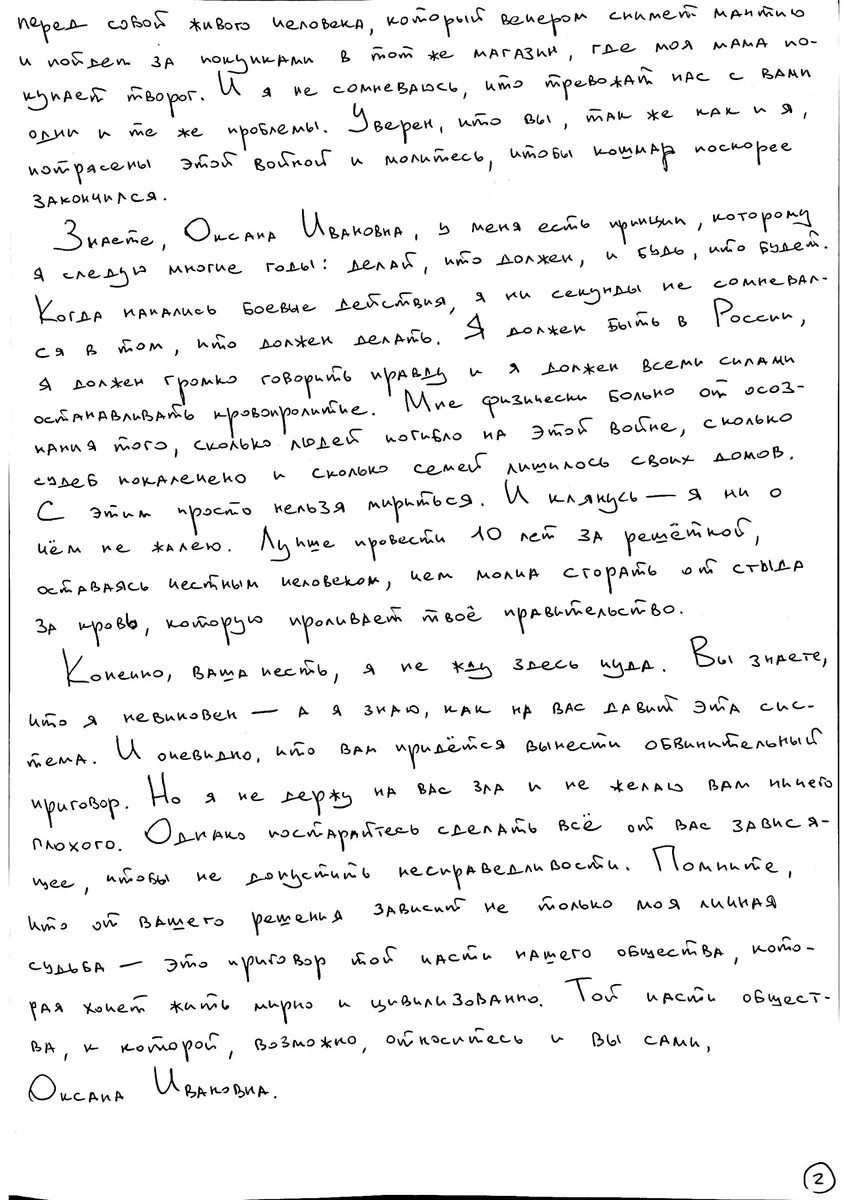 перед собой живого человека, который вечером снимет мантию
и пойдет за покупками в тот же магазин, где моя мама по-
купает творог. И я не сомневаюсь, что тревожат нас с вами
одни и те же проблемы. Уверен, что вы, так же как и я,
потрясены этой войной и молитесь, чтобы кошмар поскорее
закончился.
Знаете, Оксана Ивановна, у меня есть принцип, которому
я следую многие годы: делай, что должен, и будь, что будет.
Когда начались боевые действия, я ни секунды не сомневал-
ся в том, что должен делать. Я должен быть в России,
я должен громко говорить правду и я должен всеми силами
останавливать кровопролитие. Мне физически больно от осоз-
нания того, сколько людей погибло на этой войне, сколько
судеб покалечено и сколько семей лишилось своих домов.
С этим просто нельзя мириться. И клянусь — я ни о
чём не жалею. Лучше провести 10 лет за решёткой,
оставаясь честным человеком, чем молча сгорать от стыда
за кровь, которую проливает твоё правительство.
Конечно, ваша честь, я не жду здесь чуда. Вы знаете,
что я невиновен — а я знаю, как на вас давит эта сис-
тема. И очевидно, что вам придётся вынести обвинительный
приговор. Но я не держу на вас зла и не желаю вам ничего
плохого. Однако постарайтесь сделать всё от вас завися-
щее, чтобы не допустить несправедливости. Помните,
что от вашего решения зависит не только моя личная
судьба — это приговор той части нашего общества, кото-
рая хочет жить мирно и цивилизованно. Той части общест-
ва, к которой, возможно, относитесь и вы сами,
Оксана Ивановна.
2